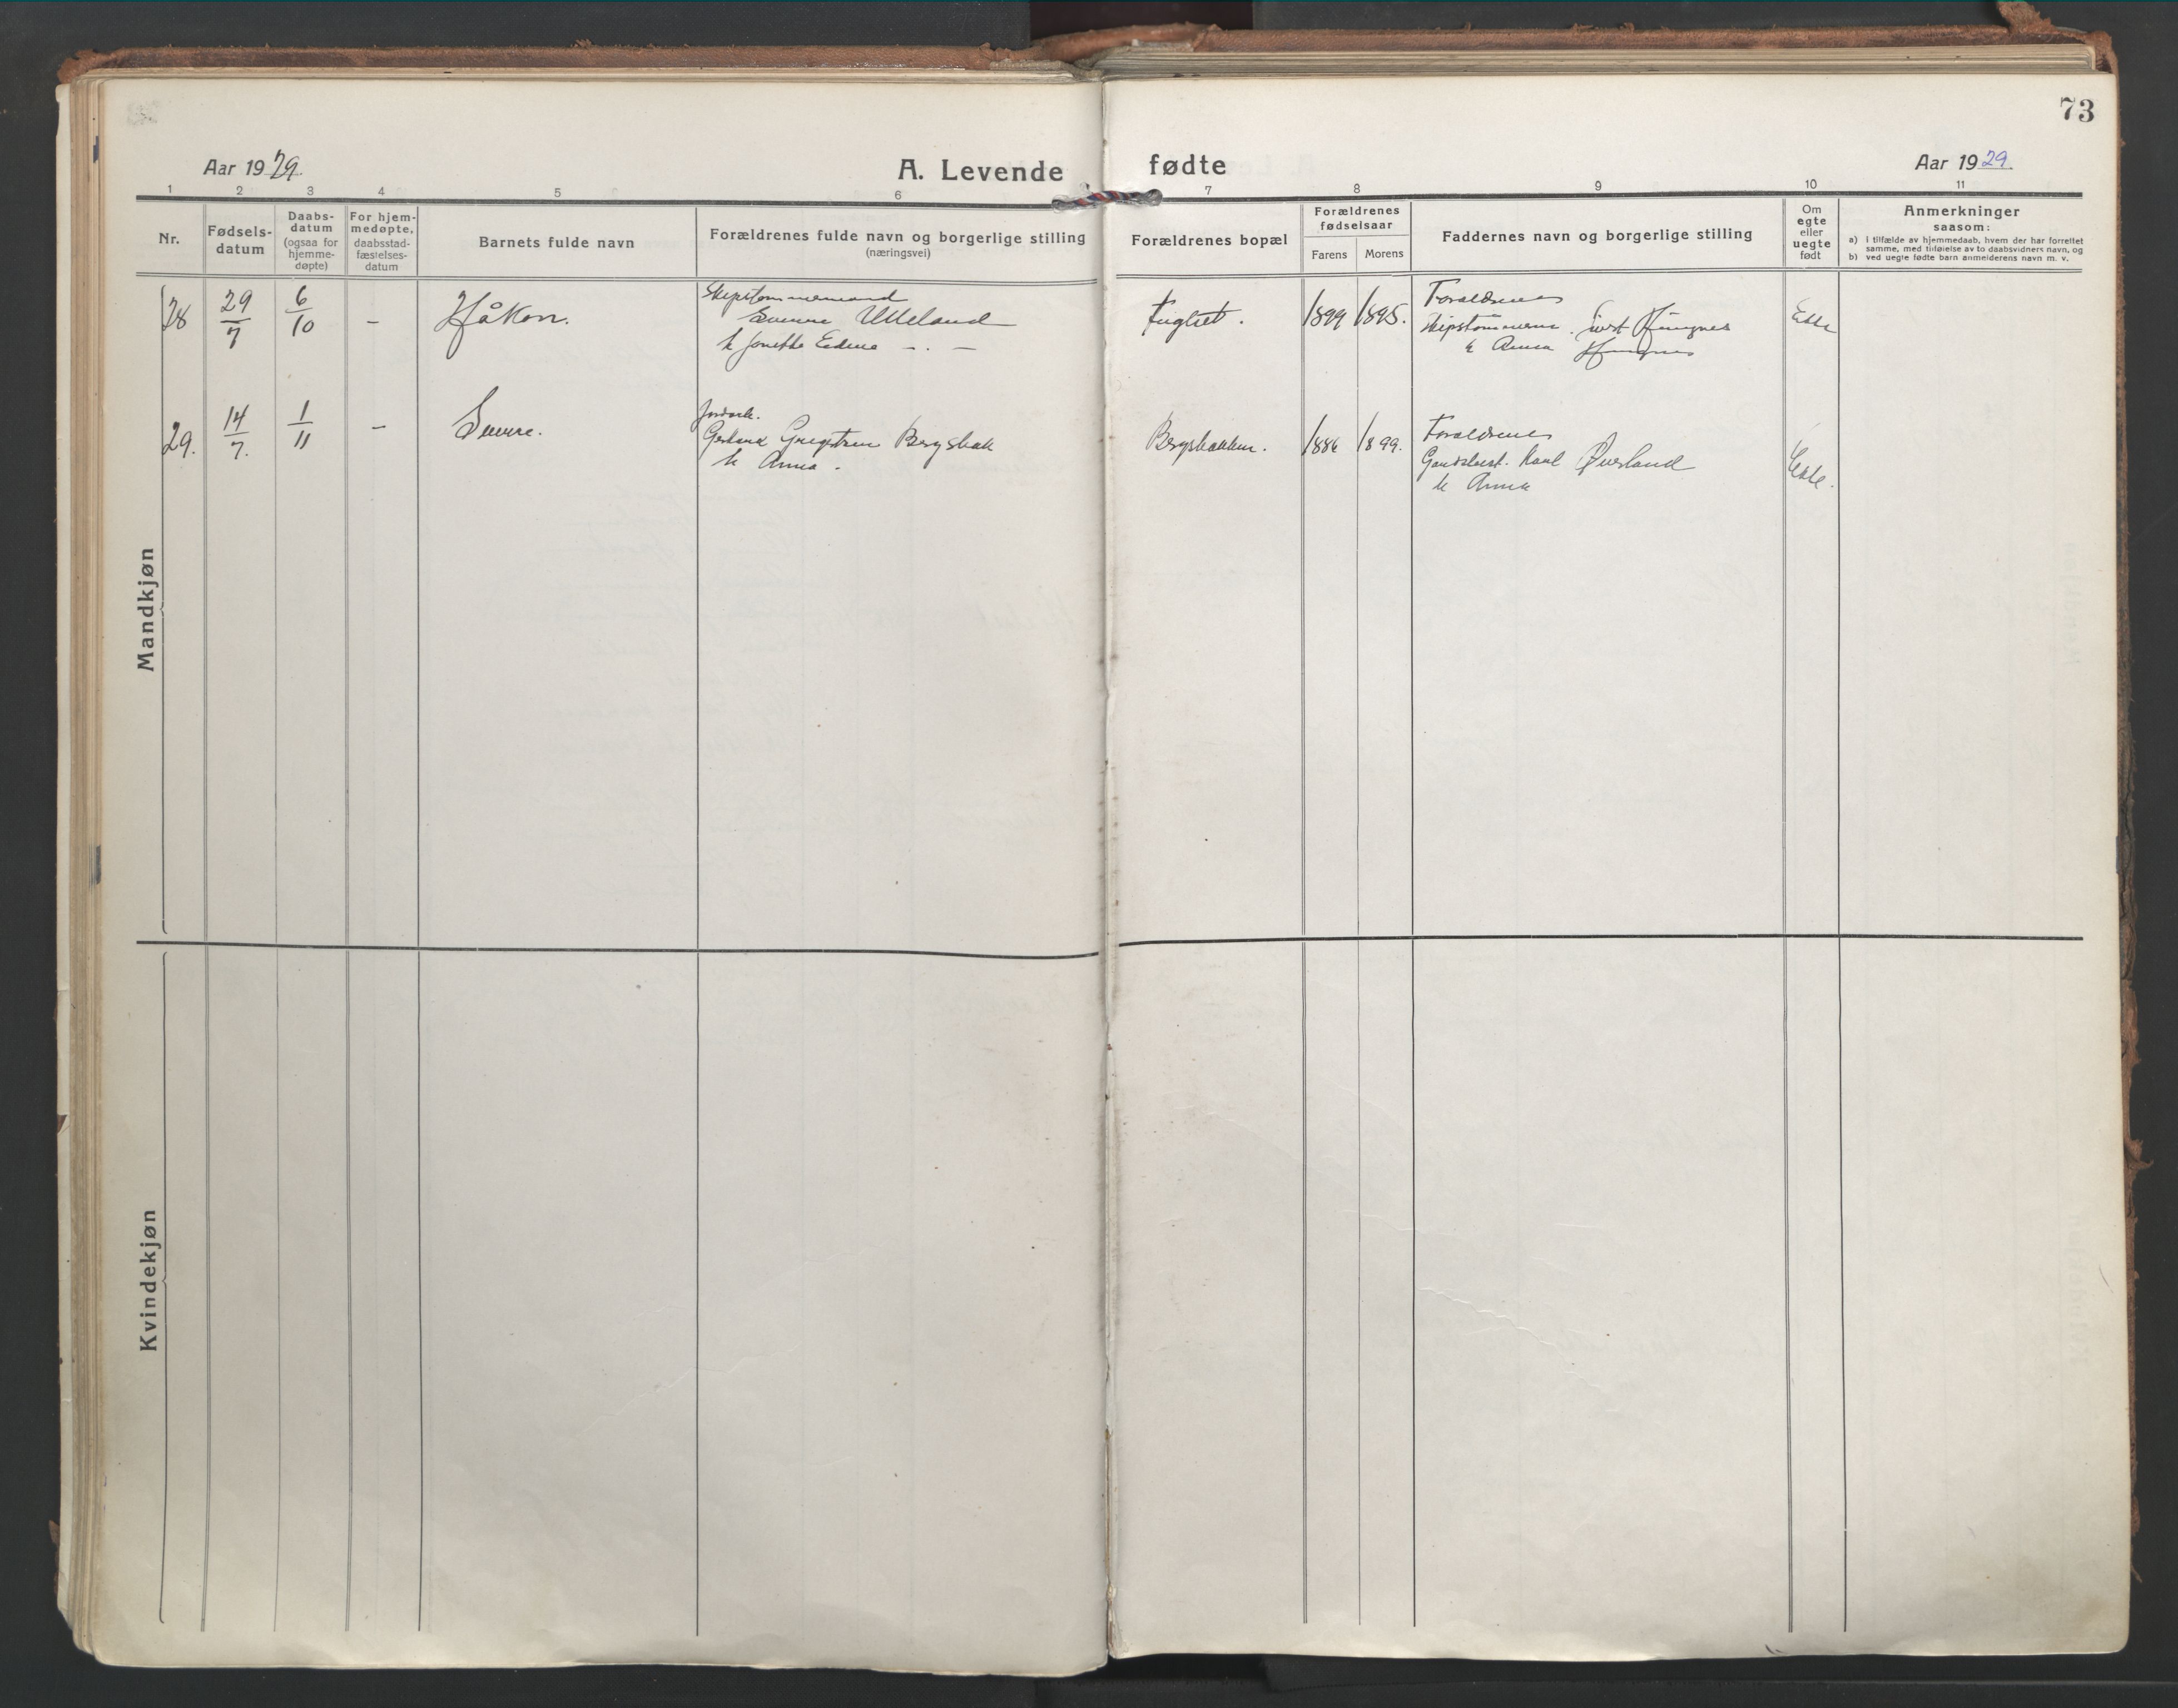 73
Aar 1929.
A. Levende fødte
Aar 1929.
1 2 3 4 5 6 7 8 9 10 11
Nr.
Fødsels-
datum
Daabs-
datum
(ogsaa for
hjemme-
døpte)
For hjem-
medøpte,
daabsstad-
fæstelses-
datum
Barnets fulde navn
Forældrenes fulde navn og borgerlige stilling
(næringsvei)
Forældrenes bopæl
Forældrenes
fødselsaar
Farens Morens
Faddernes navn og borgerlige stilling
Om
egte
eller
uegte
født
Anmerkninger
saasom:
a) i tilfælde av hjemmedaab, hvem der har forrettet
samme, med tilføielse av to daabsvidners navn, og
b) ved uegte fødte barn anmelderens navn m. v.
Mandkjøn
28 29/7 6/10 – Håkon.
Skipstømmermand
Sverre Ulleland
& Jonetta
1899 1895.
Forældrene
Skipstømmerm.
& Anna
Ekte
29. 14/7. 1/11 – Sverre.
Jordark.
Bergsbakk
& Anna.
Bergsbakken.
1886 1899.
Forældrene
Gaardbest. Karl Øverland
& Anna
Ekte.
Kvindekjøn